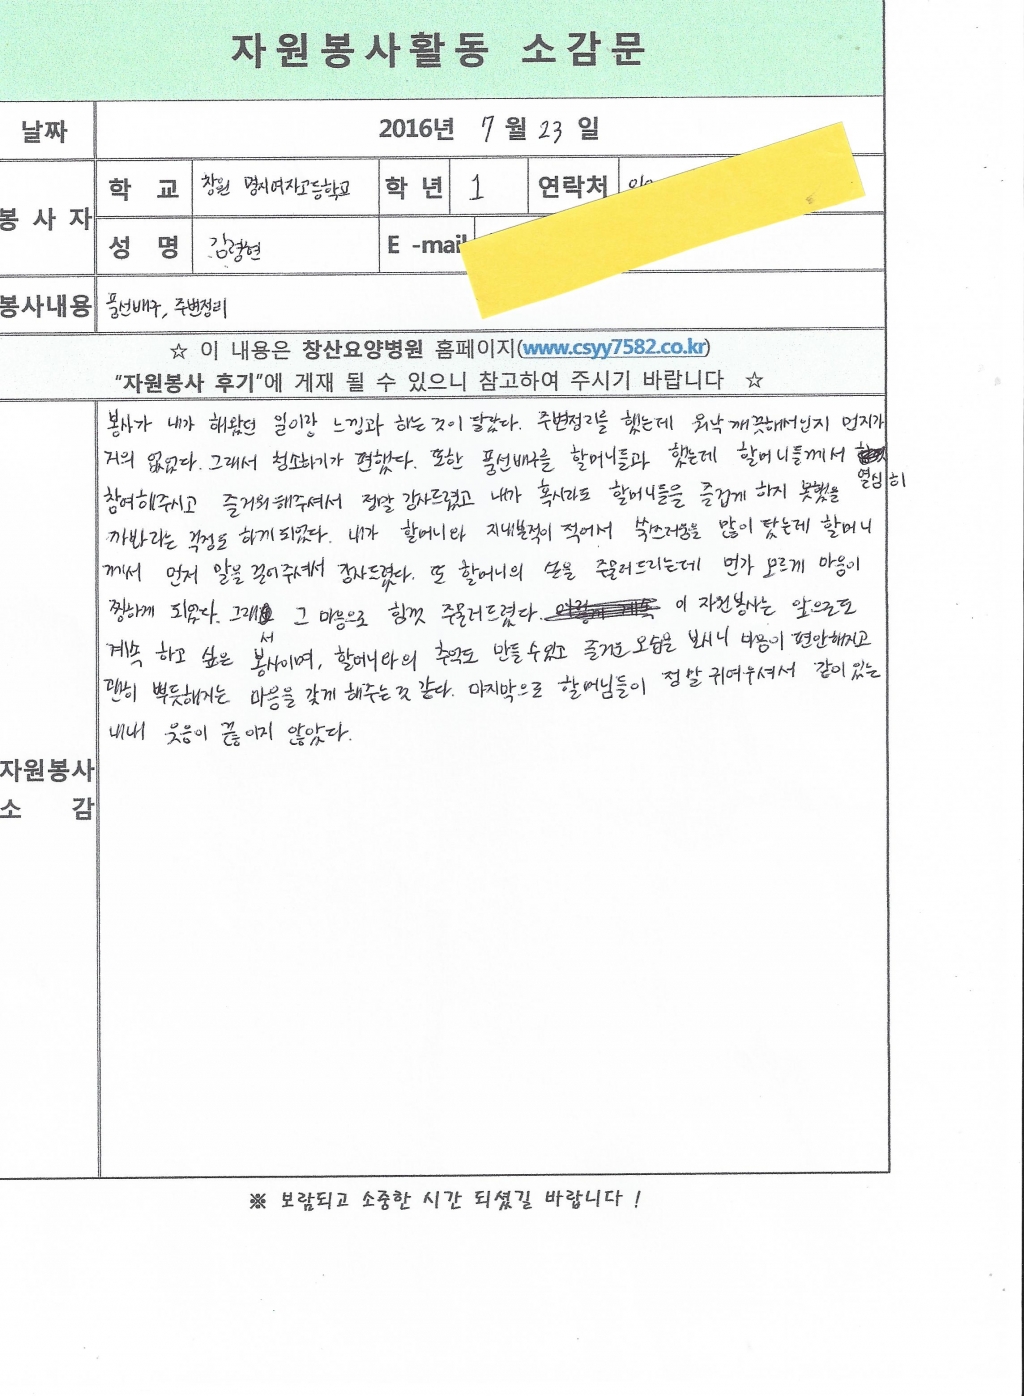 자원봉사활동 소감문
날짜 2016년 7월 23일
봉사자 학 교 창원 명지여자고등학교 학년 1 연락처
성 명 김령현 E-mail
봉사내용 풍선배구, 주변정리
☆ 이 내용은 창산요양병원 홈페이지(www.csyy7582.co.kr)
"자원봉사 후기"에 게재 될 수 있으니 참고하여 주시기 바랍니다 ☆
자원봉사 소 감
봉사가 내가 해왔던 일이랑 느낌과 하는 것이 달랐다. 주변정리를 했는데 워낙 깨끗해서인지 먼지가
거의 없었다. 그래서 청소하기가 편했다. 또한 풍선배구를 할머니들과 했는데 할머니들께서 열심히
참여해주시고 즐거워해주셔서 정말 감사드렸고 내가 혹시라도 할머니들을 즐겁게 하지 못했을
까봐라는 걱정도 하게 되었다. 내가 할머니와 지내본적이 적어서 쑥쓰러움을 많이 탔는데 할머니
께서 먼저 말을 걸어주셔서 감사드렸다. 또 할머니의 손을 주물러드리는데 먼가 모르게 마음이
찡하게 되었다. 그래서 그 마음으로 힘껏 주물러드렸다. 이 자원봉사는 앞으로도
계속 하고 싶은 봉사이며, 할머니와의 추억도 만들 수 있고 즐거운 모습을 보시니 마음이 편안해지고
괜히 뿌듯해지는 마음을 갖게 해주는 것 같다. 마지막으로 할머님들이 정말 귀여우셔서 같이 있는
내내 웃음이 끊이지 않았다.
※ 보람되고 소중한 시간 되셨길 바랍니다 !